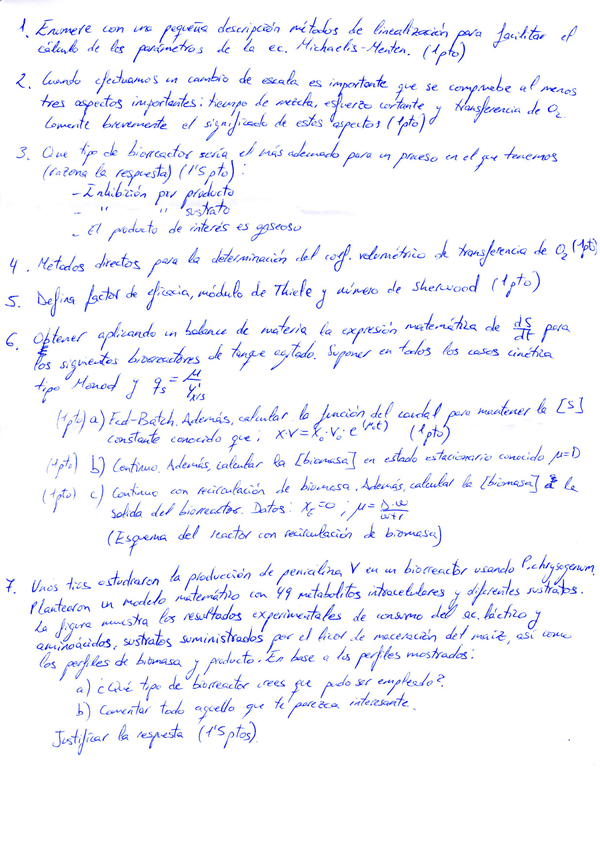 1. Enumere con una pequeña descripción métodos de linealización para facilitar el
cálculo de los parámetros de la ec. Michaelis-Menten. (1pto)
2. Cuando efectuamos un cambio de escala es importante que se compruebe al menos
tres aspectos importantes: tiempo de mezcla, esfuerzo cortante y transferencia de O2.
Comente brevemente el significado de estos aspectos (1pto)
3. Que tipo de biorreactor sería el más adecuado para un proceso en el que tenemos
(razona la respuesta) (1'5 pto) :
- Inhibición por producto
- " " sustrato
- El producto de interés es gaseoso
4. Métodos directos para la determinación del coef. volumétrico de transferencia de O2 (1pto)
5. Defina factor de eficacia, módulo de Thiele y número de Sherwood (1pto)
6. Obtener aplicando un balance de materia la expresión matemática de dS/dt para
los siguientes biorreactores de tanque agitado. Suponer en todos los casos cinética
tipo Monod y qs = μ/Y'x/s
(1pto) a) Fed-Batch. Además, calcular la función del caudal para mantener la [S]
constante conocido que: X·V = X0·V0·e^(μ·t) (1pto)
(1pto) b) Continuo. Además, calcular la [biomasa] en estado estacionario conocido μ=D
(1pto) c) Continuo con recirculación de biomasa. Además, calcular la [biomasa] a la
salida del biorreactor. Datos: Xe=0 ; μ = D·w/w+r
(Esquema del reactor con recirculación de biomasa)
7. Unos tios estudiaron la producción de penicilina V en un biorreactor usando P. chrysogenum.
Plantearon un modelo matemático con 49 metabolitos intracelulares y diferentes sustratos.
La figura muestra los resultados experimentales de consumo del ac. láctico y
aminoácidos, sustratos suministrados por el licor de maceración del maíz, así como
los perfiles de biomasa y producto. En base a los perfiles mostrados:
a) ¿Qué tipo de biorreactor crees que pudo ser empleado?
b) Comentar todo aquello que te parezca interesante.
Justificar la respuesta (1'5 ptos).